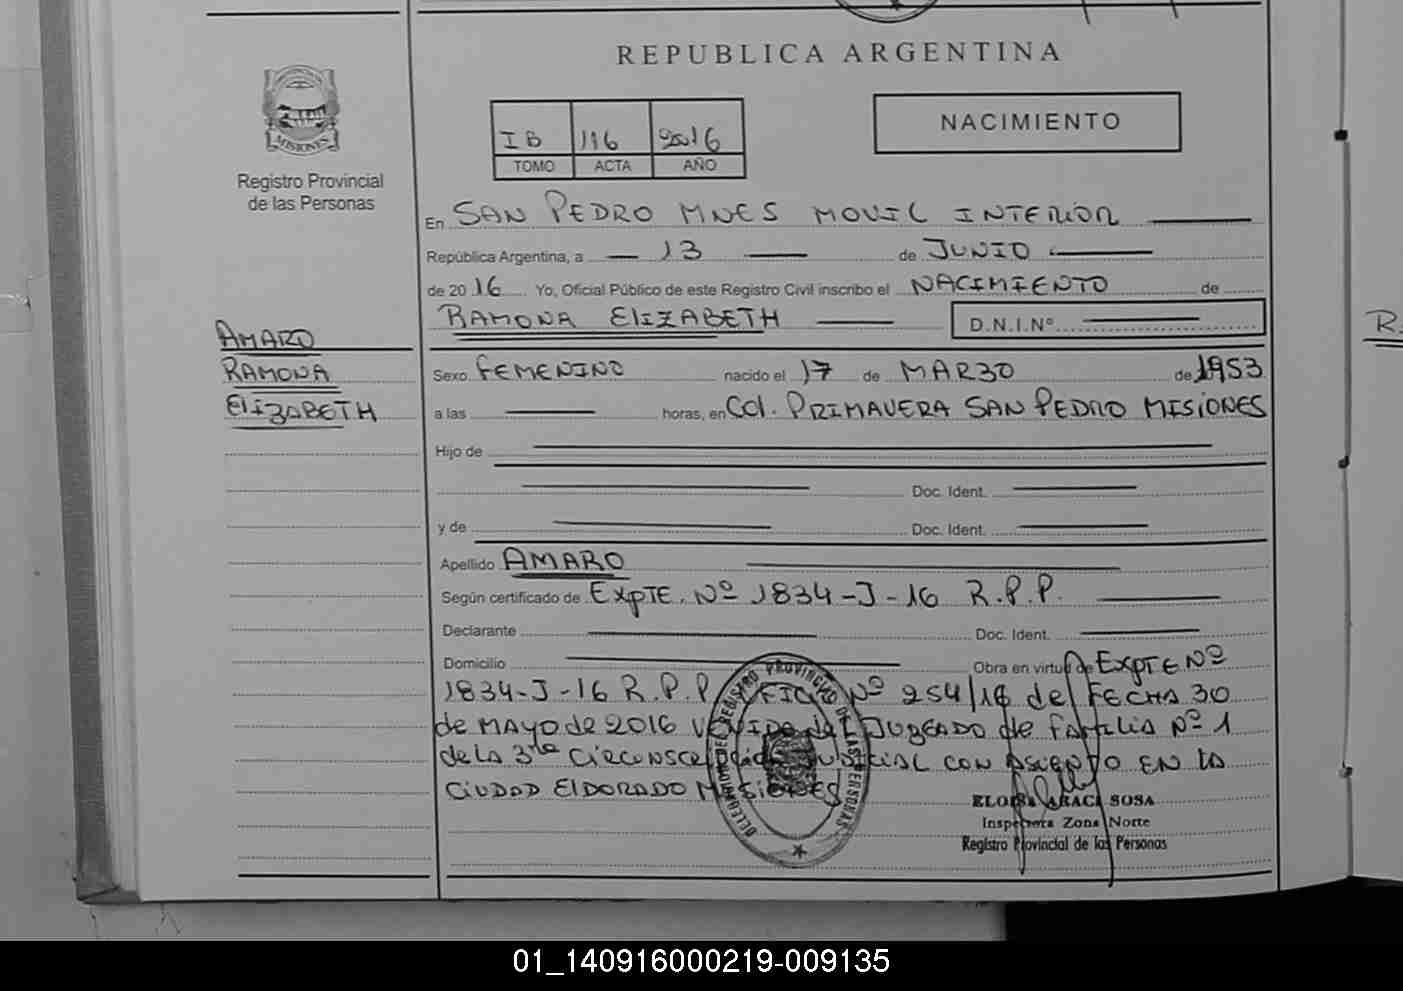 REPUBLICA ARGENTINA
MISIONES
Registro Provincial
de las Personas
IB 116 2016
TOMO ACTA AÑO
NACIMIENTO
En SAN PEDRO MNES MOVIL INTERIOR
República Argentina, a 13 de JUNIO
de 2016 Yo, Oficial Público de este Registro Civil inscribo el NACIMIENTO de
RAMONA ELIZABETH D.N.I.Nº
AMARO
RAMONA
ELIZABETH
Sexo FEMENINO nacido el 17 de MARZO de 1953
a las horas, en Col. PRIMAVERA SAN PEDRO MISIONES
Hijo de
Doc. Ident.
y de Doc. Ident.
Apellido AMARO
Según certificado de EXPTE. Nº 1834-J-16 R.P.P.
Declarante Doc. Ident.
Domicilio Obra en virtud de EXPTE Nº
1834-J-16 R.P.P. OFICIO Nº 254/16 de FECHA 30
de MAYO de 2016 VENIDO del JUZGADO de FAMILIA Nº 1
de LA 3ra CIRCUNSCRIPCIÓN JUDICIAL CON ASIENTO EN LA
CIUDAD ELDORADO MISIONES
REGISTRO PROVINCIAL DE LAS PERSONAS
SOSA
Inspectora Zona Norte
Registro Provincial de las Personas
R.
01_140916000219-009135